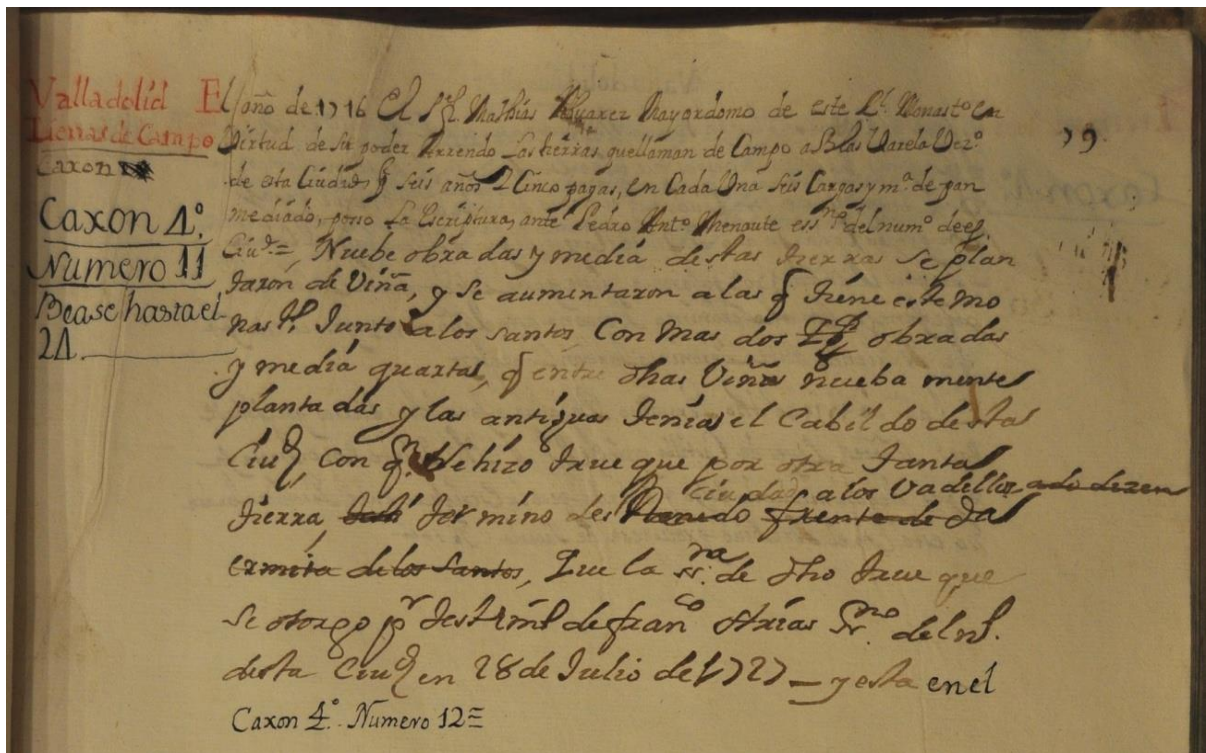 Valladolid
Tierras de Campo
Caxon
Caxon 4º.
Numero 11
Bease hasta el
24.
79.
El año de 1716 El Sr. Mathias Alvarez Mayordomo de este Rl. Monastº en
Virtud de su poder Arrendo Las tierras que llaman de Campo a Blas Varela Vezº
de esta Ciudad, seis años 2 Cinco pagas, en Cada Una Seis Cargas y mª de pan
mediado, passo La Escriptura, ante Pedro Antº Menaute essno del numº de
Ciud = Nuebe obradas y media destas tierras se plan
taron de Viña, y se aumentaron a las q tiene este Mo
nastº Junto a los santos Con mas dos obradas
y media quartas, q entre dhas Viñas nueba mente
plantadas y las antiguas tenia el Cabildo desta
Ciud, Con qn se hizo trueque por otra tanta
Ciudad a los Vadillos
tierra, termino des
ermita de los Santos, Que la ssra de dho trueque
se otorgo pr testimº de franco Arias Ssno del nº.
desta Ciud en 28 de Julio de 1727 — y esta en el
Caxon 4º. Numero 12=